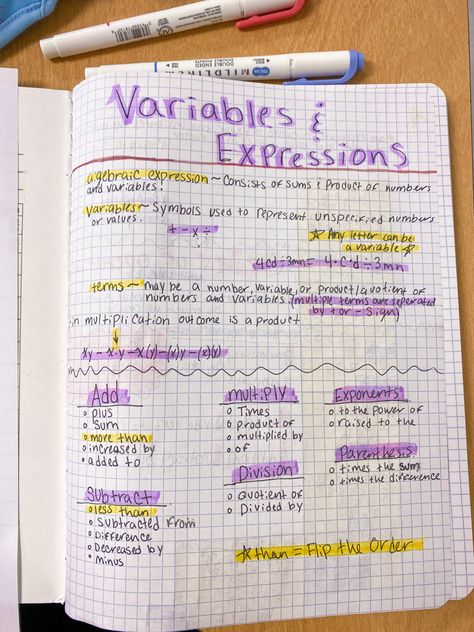 MILDLINER
DOUBLE ENDED
Variables &
Expressions
algebraic expression ~ Consists of sums & product of numbers
and variables!
Variables ~ Symbols used to represent unspecified numbers
or values.
+ - x ÷
☆ Any letter can be
a variable ☆
4cd ÷ 3mn = 4 · c · d ÷ 3mn
terms ~ may be a number, variable, or product/quotient of
numbers and variables. (multiple terms are seperated
by + or - sign)
in multiplication outcome is a product
xy - x · y - x(y) - (x)y - (x)(y)
Add
o plus
o sum
o more than
o increased by
o added to
multiply
o Times
o product of
o multiplied by
o of
Exponents
o to the power of
o raised to the
Parenthesis
o times the sum
o times the difference
Division
o Quotient of
o Divided by
Subtract
o less than
o subtracted from
o Difference
o Decreased by
o minus
☆ than = Flip the Order